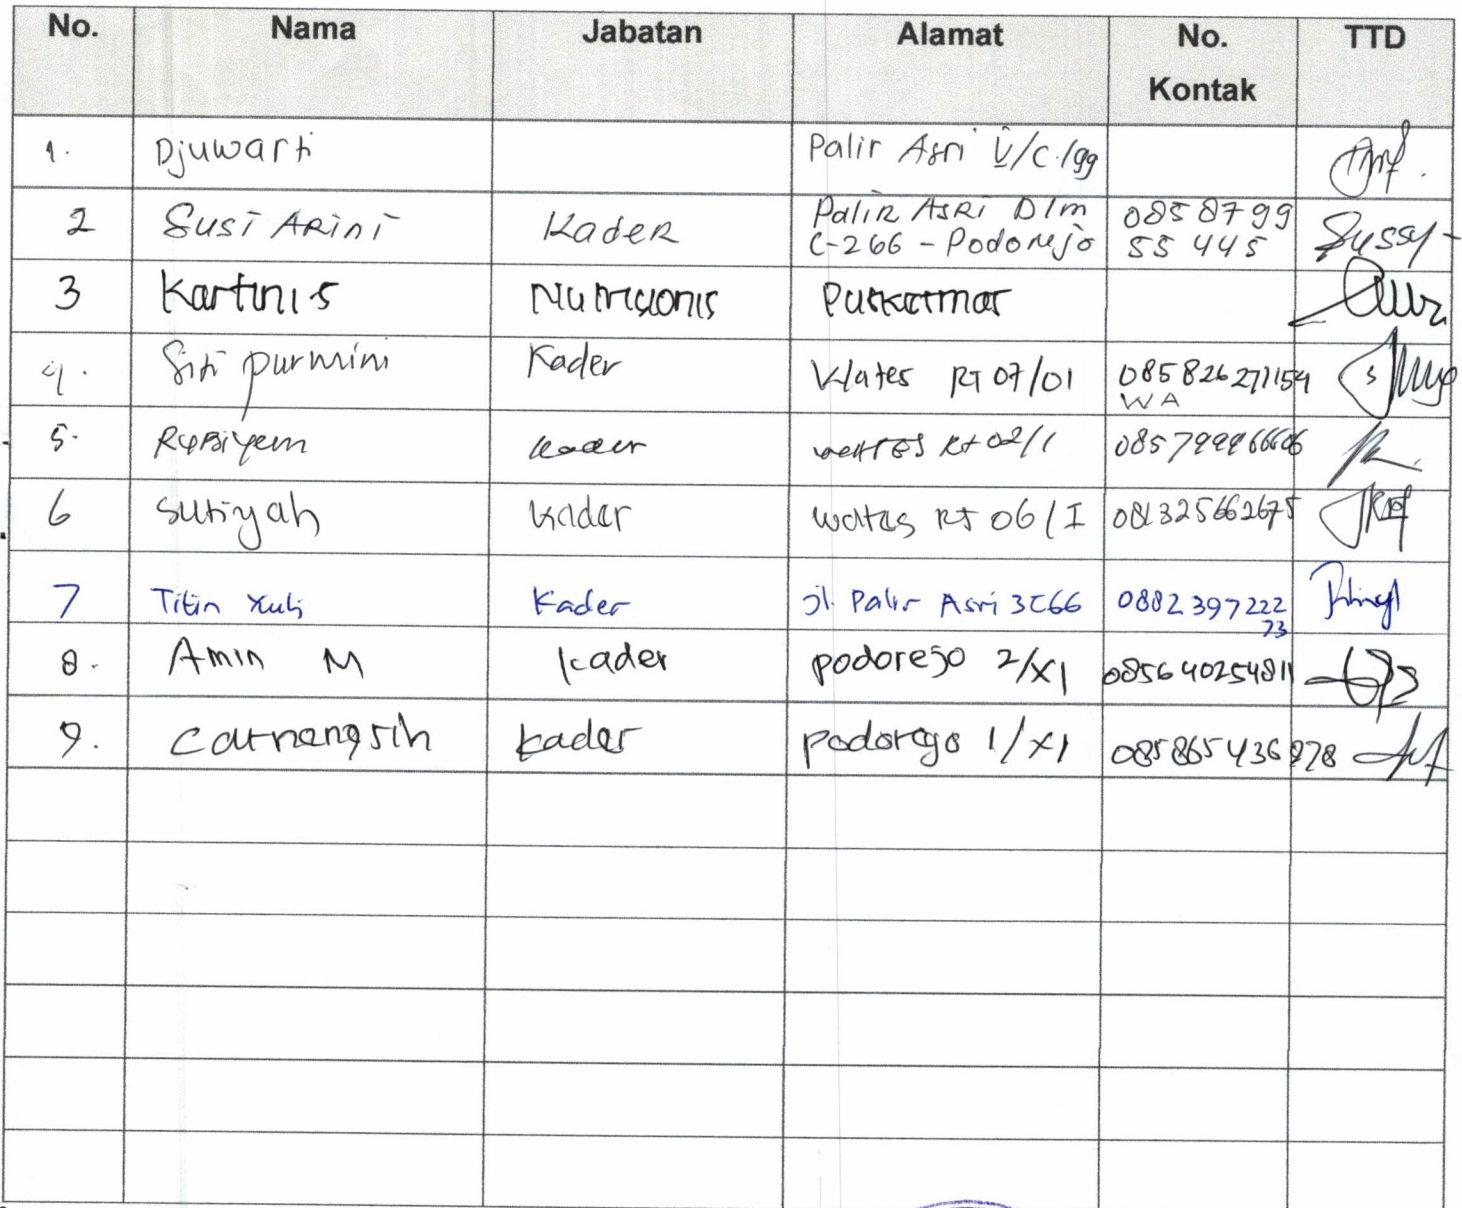 No. Nama Jabatan Alamat No. Kontak TTD
1. Djuwarti Palir Asri V/C.199
2 Susi Arini Kader Palir Asri Dlm 0858799
C-266 - Podorejo 55 445 Sussy
3 Kartini S Nutrisionis Puskesmas
4. Siti purmini Kader Wates RT 07/01 085826271154
WA
5. Rubiyem kader RT 02/1
6 Sutiyah kader wates RT 06/I 081325662675
7 Titin Yuli Kader Jl. Palir Asri 3C66 0882397222
73
8. Amin M kader podorejo 2/XI 085640254811
9. carnengsih kader podorejo 1/XI 085865436978